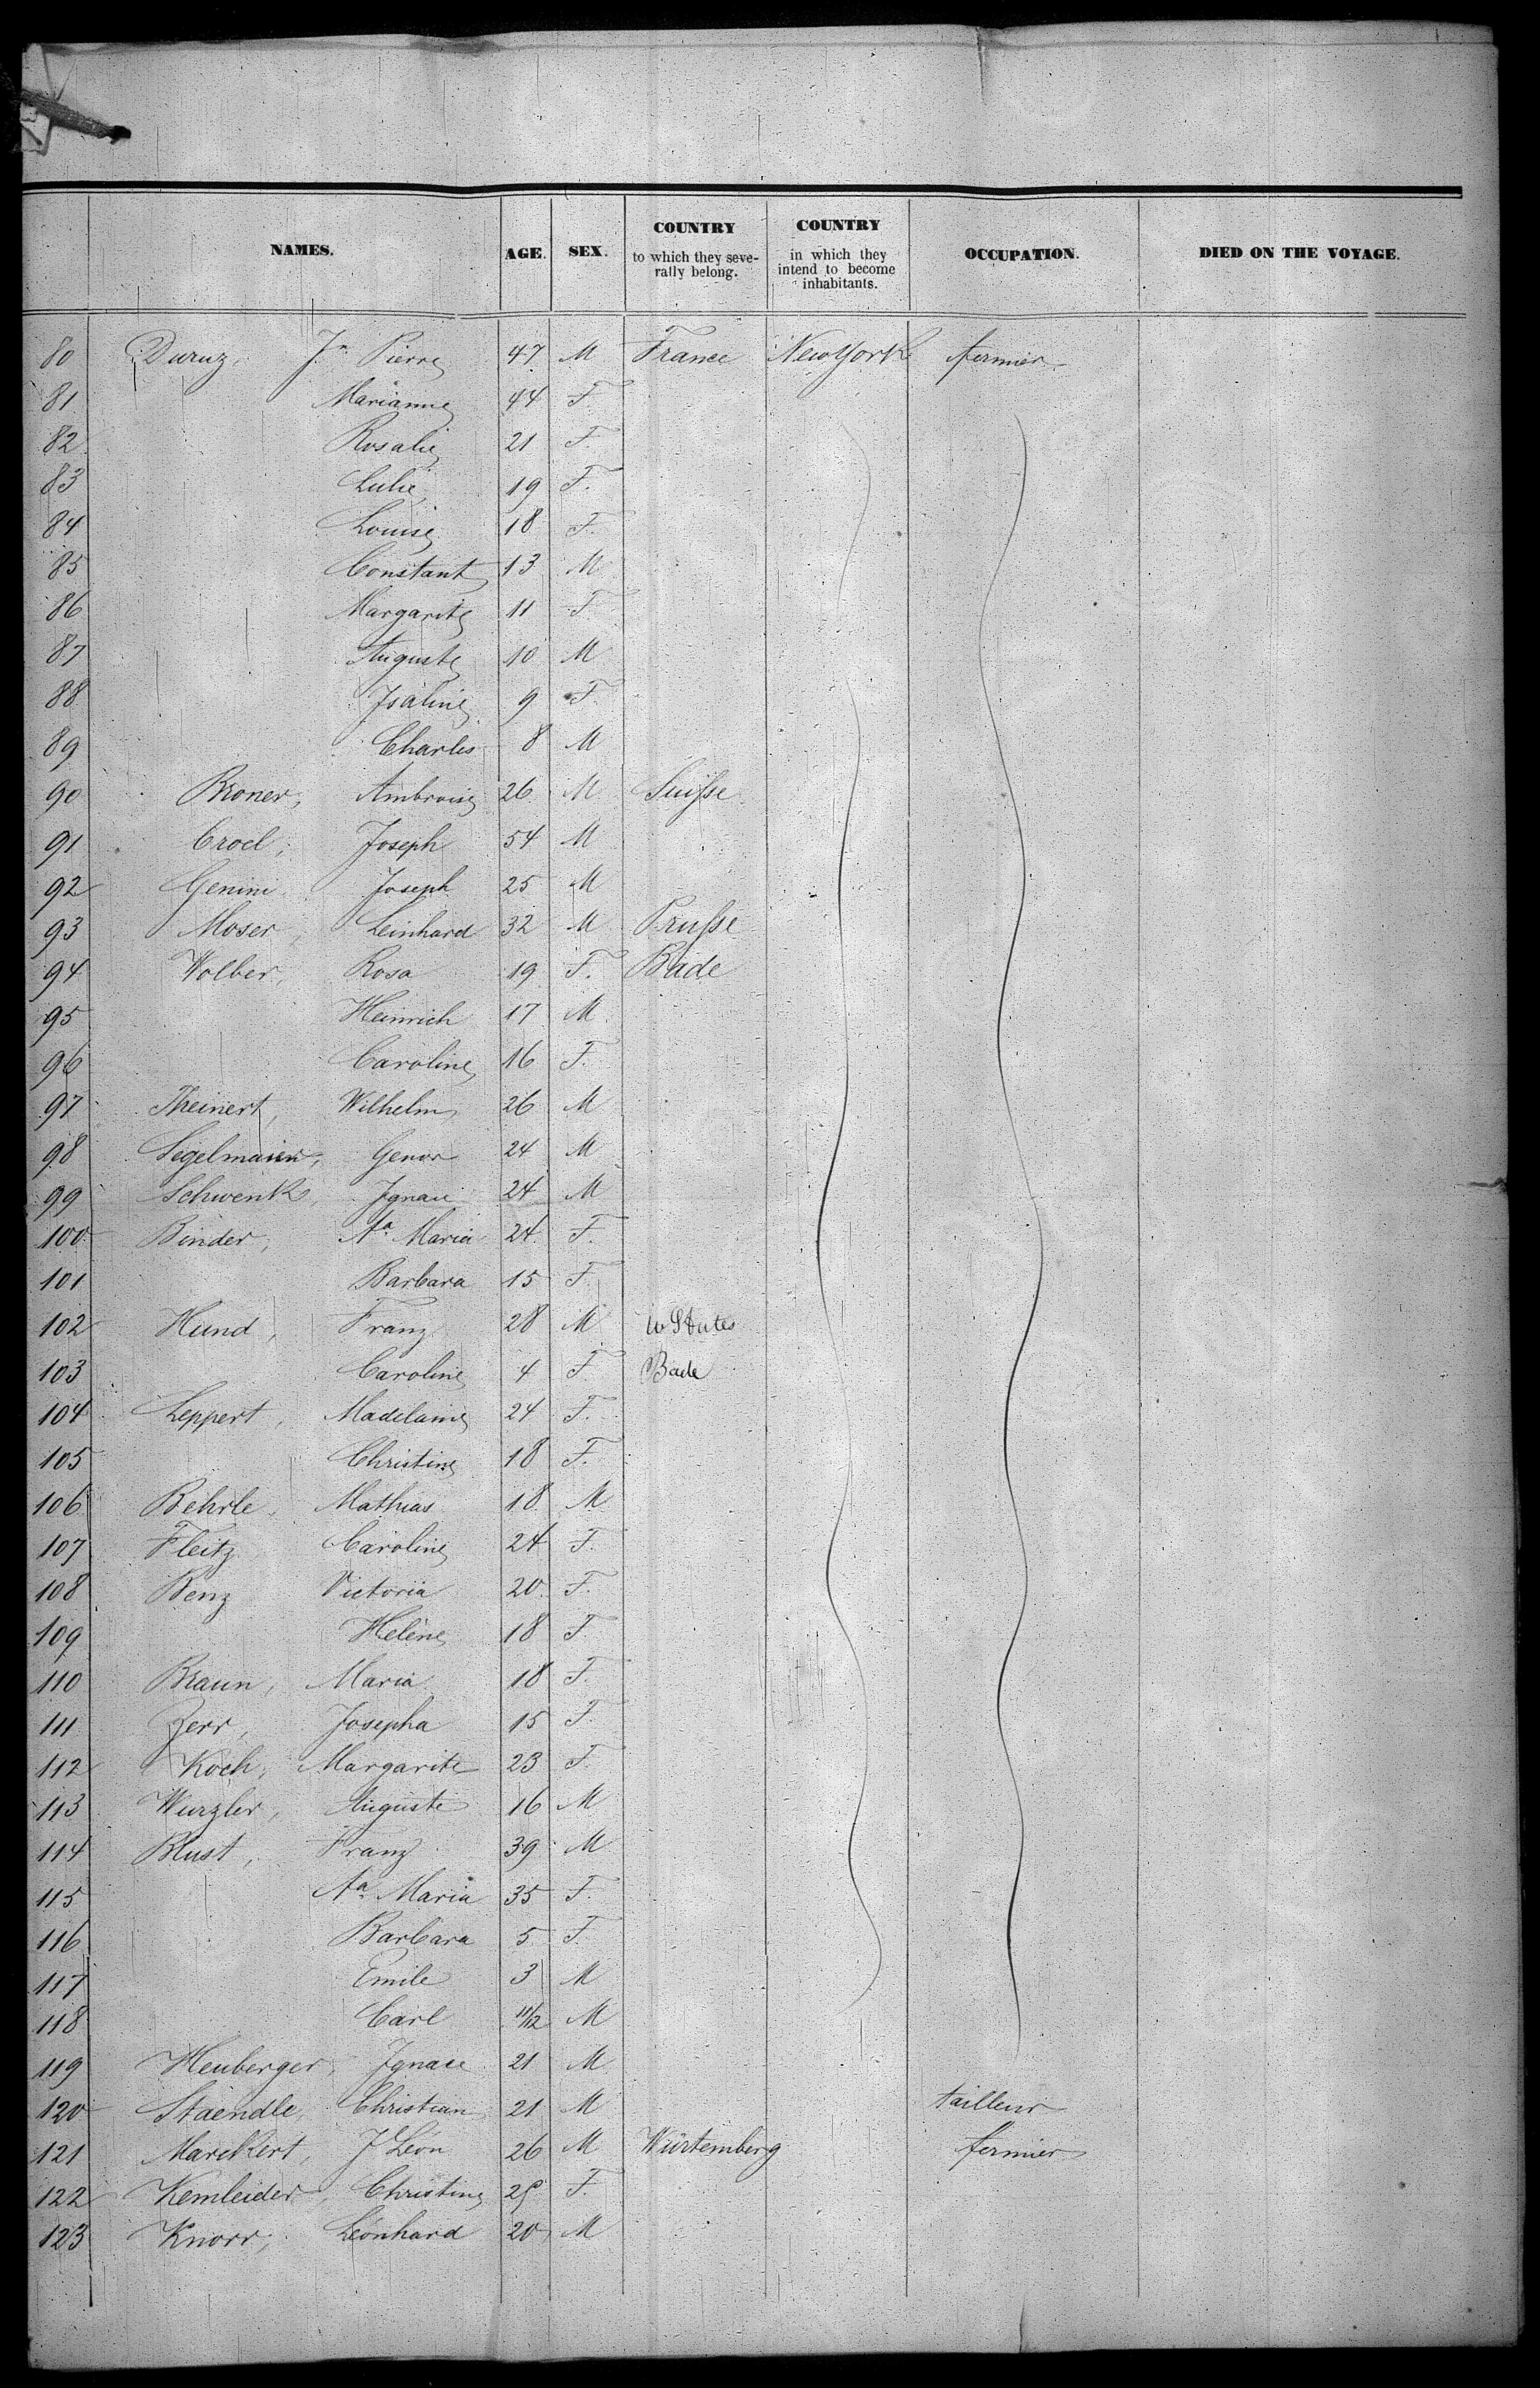 NAMES. AGE. SEX. COUNTRY to which they severally belong. COUNTRY in which they intend to become inhabitants. OCCUPATION. DIED ON THE VOYAGE.
80 Duruz, Jn Pierre 47 M France New York fermier
81 Marianne 44 F
82 Rosalie 21 F.
83 Lulie 19 F.
84 Louise 18 F.
85 Constant 13 M
86 Margarite 11 F
87 Auguste 10 M
88 Isaline 9 F.
89 Charles 8 M
90 Broner, Ambroise 26 M Suisse
91 Crocl, Joseph 54 M
92 Genini Joseph 25 M
93 Moser, Leinhard 32 M Prusse
94 Wolber, Rosa 19 F. Bade
95 Heinrich 17 M
96 Caroline 16 F.
97 Theinert, Wilhelm 26 M
98 Segelmaier, 24 M
99 Schwenk, Ignace 24 M
100 Binder, Aa Maria 24 F.
101 Barbara 15 F.
102 Hund, Franz 28 M States
103 Caroline 4 F Bade
104 Leppert, Madelaine 24 F.
105 Christine 18 F.
106 Behrle, Mathias 18 M
107 Fleitz Caroline 24 F.
108 Benz Victoria 20 F.
109 Helène 18 F
110 Braun, Maria 18 F.
111 Zerr, Josepha 15 F.
112 Koch, Margarite 23 F.
113 Wurzler, Auguste 16 M
114 Blust, Franz 39 M
115 Aa Maria 35 F.
116 Barbara 5 F.
117 Emile 3 M
118 Carl 11/12 M
119 Heuberger, Ignace 21 M
120 Staendle, Christian 21 M tailleur
121 Marckert, J Léon 26 M Würtemberg fermier
122 Kemleider, Christine 25 F.
123 Knorr, Léonhard 20 M